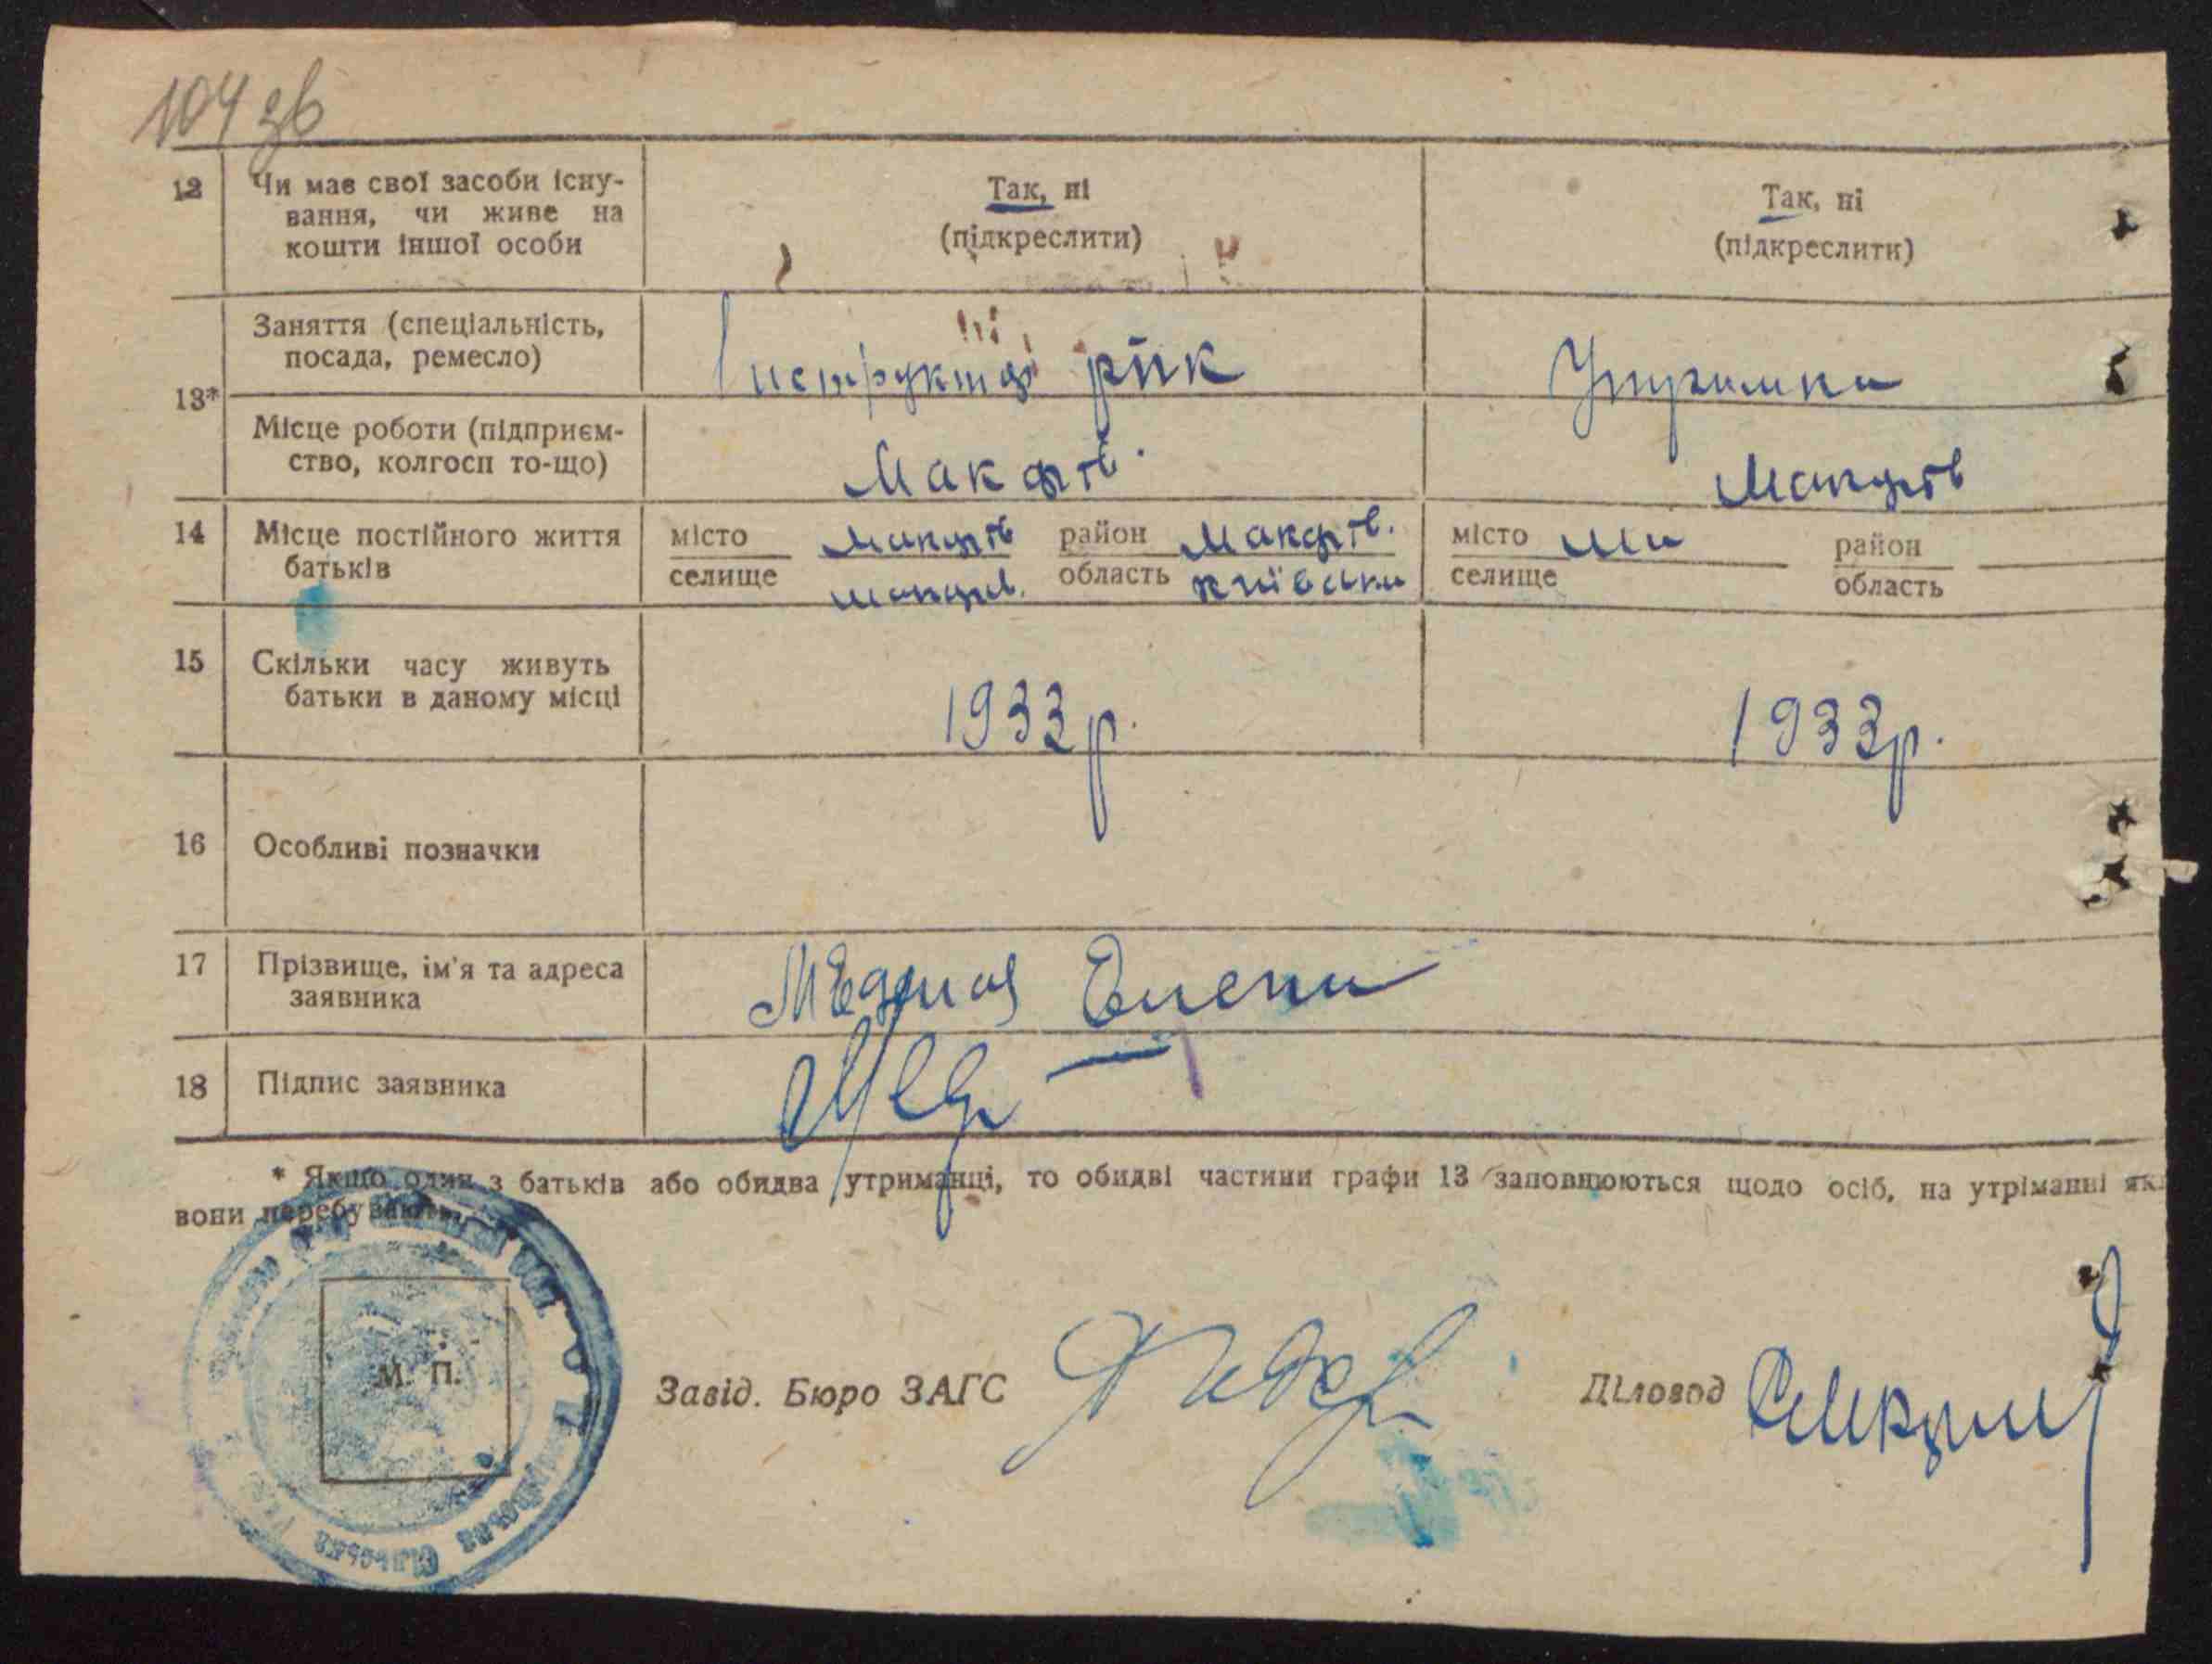 104 зв
12 Чи має свої засоби існу-
вання, чи живе на
кошти іншої особи
Так, ні
(підкреслити)
Так, ні
(підкреслити)
13*
Заняття (спеціальність,
посада, ремесло)
Інструктор рпк
Утриманка
Місце роботи (підприєм-
ство, колгосп то-що)
Макарів
Макарів
14 Місце постійного життя
батьків
місто Макарів район Макарів.
селище Макарів. область Київська
місто район
селище область
15 Скільки часу живуть
батьки в даному місці
1933 р.
1933 р.
16 Особливі позначки
17 Прізвище, ім'я та адреса
заявника
18 Підпис заявника
* Якщо один з батьків або обидва утриманці, то обидві частини графи 13 заповнюються щодо осіб, на утріманні як
вони перебувають.
М. П.
Завід. Бюро ЗАГС
Діловод